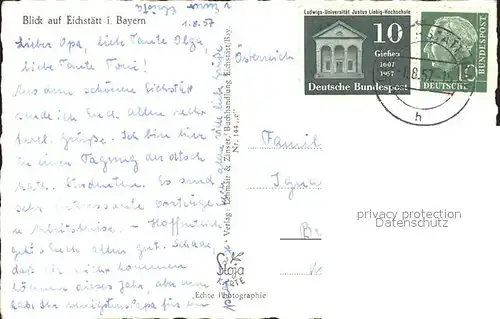 Blick auf Eichstätt i. Bayern
1.8.57
Lieber Opa, liebe Tante Olga,
liebe Tante Toni!
Aus dem schönen Eichstätt
sende ich Euch allen recht
herzl. Grüße. Ich bin hier
zu einer Tagung der dtsch
kath. Studenten. Es sind
sehr interessante Vorträge
u Arbeitskreise. - Hoffentlich
geht Euch allen gut. Schade,
daß wir nicht kommen
können dieses Jahr, aber dann
Österreich
Verlag: Lehmair & Zinser, Buchhandlung Eichstätt/Bay.
Nr. 144
Echte Photographie
Ludwigs-Universität Justus Liebig-Hochschule
10
Gießen
1607
1957
Deutsche Bundespost
DEUTSCHE
BUNDESPOST
10
8.57
h
Famil
Igna
privacy protection
Datenschutz